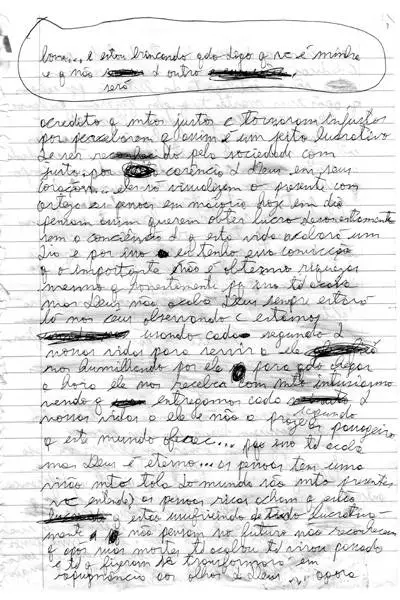 boca... e estou brincando qdo digo q vc é minha
e q não d outro
será
acredito q mtos justos c tornaram injustos
por perceberem q assim é um jeito lucrativo
de ser pela sociedade com
justo, por carência d Deus em seus
corações... eles só visualizam o presente com
as pessoas em maioria hoje em dia
pensam assim querem obter lucro desonestamente
sem a conciência d q esta vida acabará um
dia e por isso eu tenho essa convicção
q o importante não é obtermos riquezas
mesmo q honestamente pq isso td acaba
mas Deus não acaba Deus sempre estará
lá nos ceus observando c estamos
usando cada segundo d
nossas vidas para servir a ele
nos humilhando por ele para qdo chegar
a hora ele nos receba com mto entusiasmo
vendo q entregamos cada segundo d
nossas vidas a ele e não a passageiro
q este mundo oferece... pq isso td acaba
mas Deus é eterno... as pessoas tem uma
visão mto tola do mundo são mto presentes
vc entende? as pessoas ricas acham q estão
q estão usufruindo de tudo lucrativa-
mente e não pensam no futuro não reconhecem
q após suas mortes td acabou td virou passado
e td q fizeram se transformará em
repugnância aos olhos d Deus ... agora